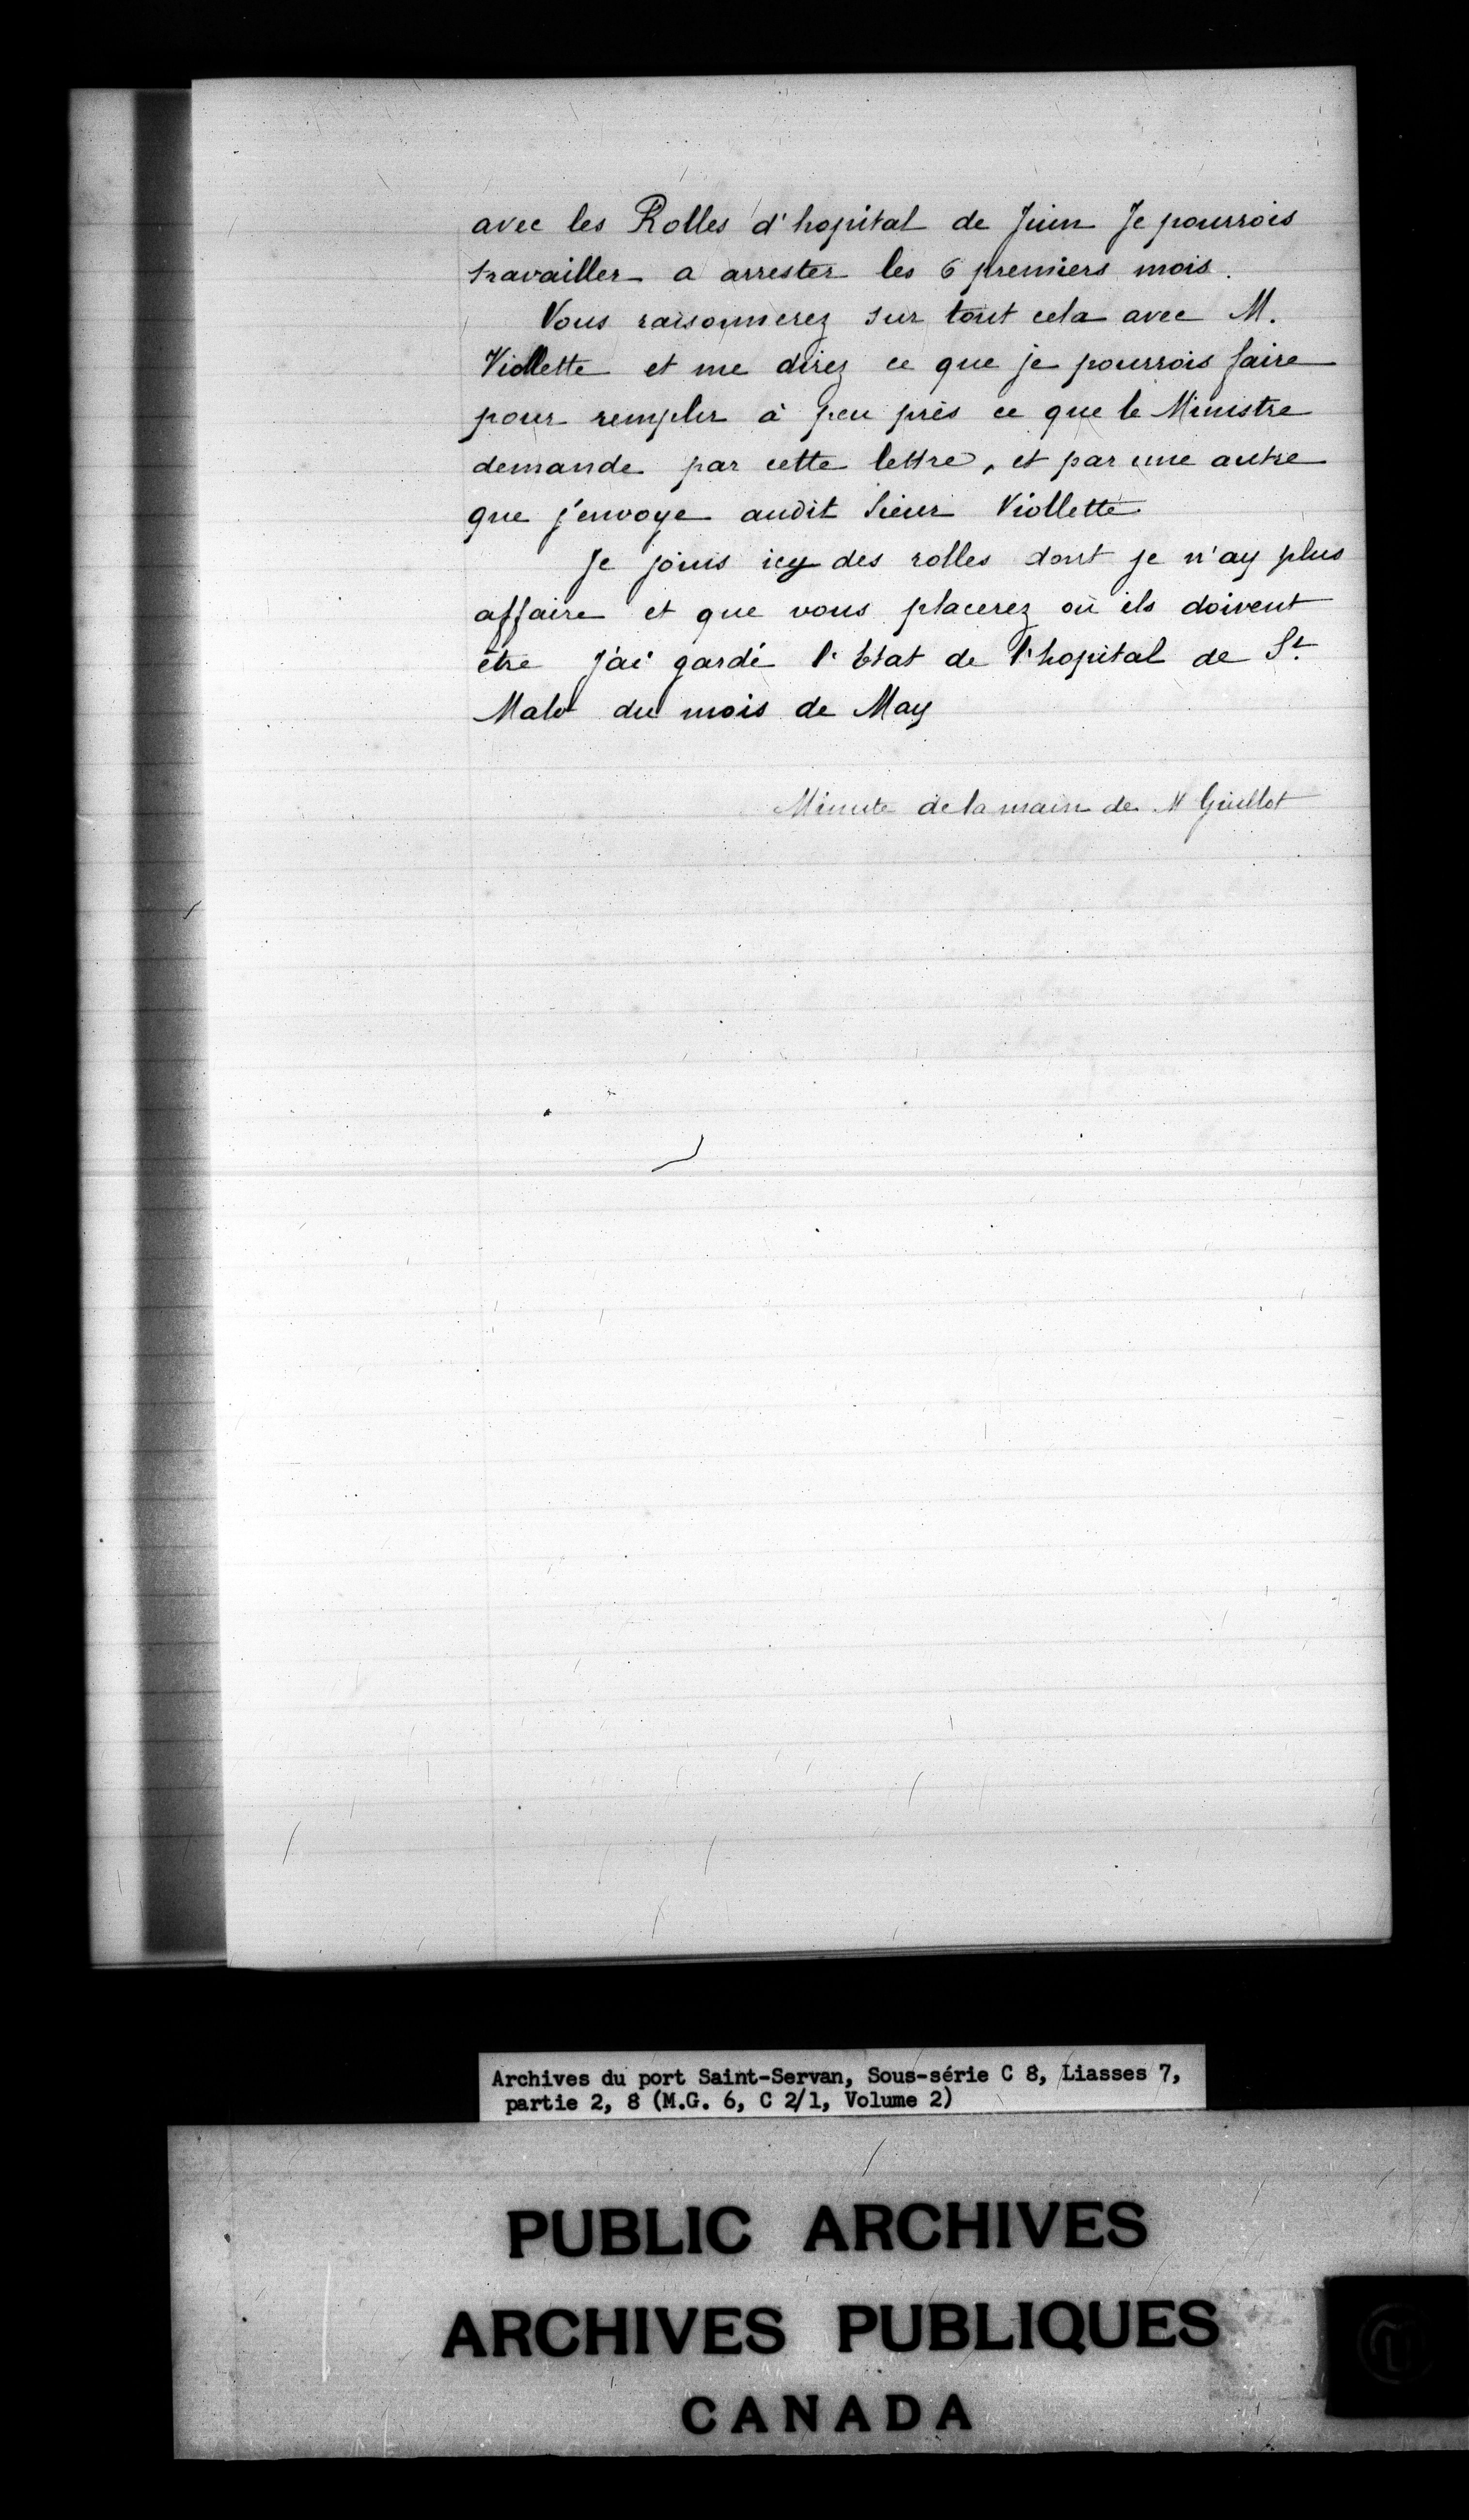 avec les Rolles d'hopital de Juin Je pourrois
travailler a arrester les 6 premiers mois.
Vous raisonnerez sur tout cela avec M.
Viollette et me direz ce que je pourrois faire
pour remplir à peu près ce que le Ministre
demande par cette lettre, et par une autre
que j'envoye audit Sieur Viollette
Je joins icy des rolles dont je n'ay plus
affaire et que vous placerez où ils doivent
être j'ai gardé l'Etat de l'hopital de St.
Malo du mois de May
Minute de la main de M Guillot
Archives du port Saint-Servan, Sous-série C 8, Liasses 7,
partie 2, 8 (M.G. 6, C 2/1, Volume 2)
PUBLIC ARCHIVES
ARCHIVES PUBLIQUES
CANADA